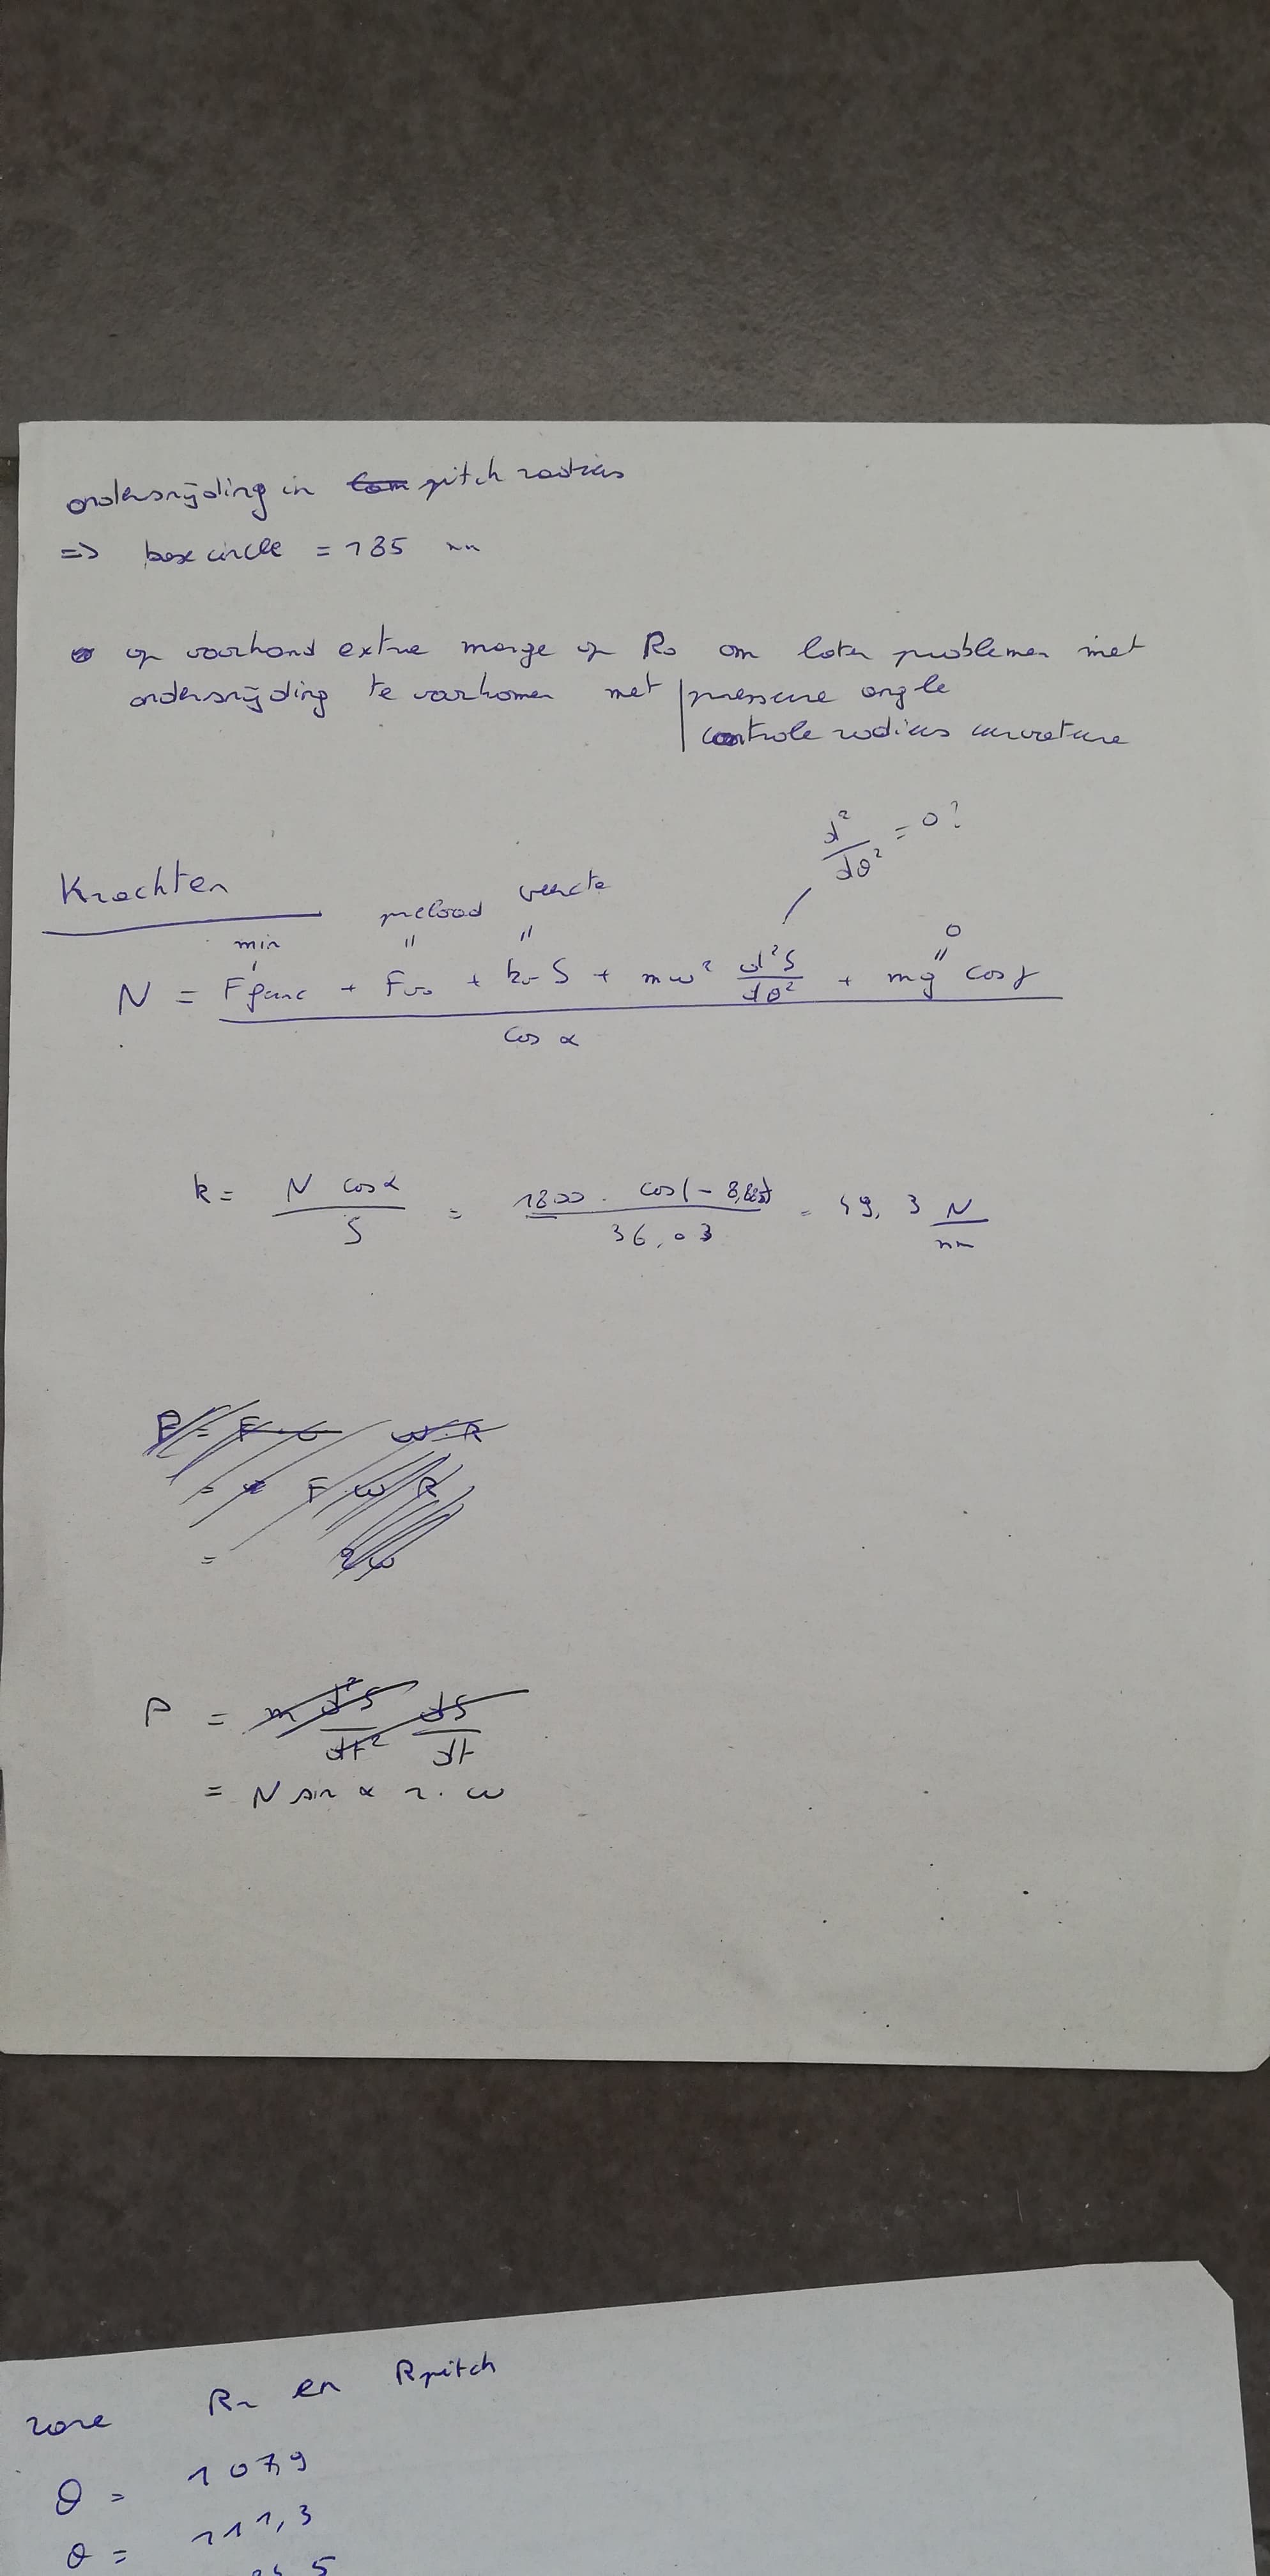 ondersnijding in pitch radius
=> base circle = 185 mm
op voorhand extra marge op R₀ om later problemen met
ondersnijding te voorkomen met | pressure angle
controle radius curvature
d²/dθ² = 0?
Krachten
min preload veercte 0
N = (Ffunc + Fv₀ + kv S + mω² d²S/dθ² + mg cos γ) / cos α
k = N cos α / S = 1800 . cos(- / 36,03 = 49,3 N/mm
P = m d²S/dt² dS/dt
= N sin α r . ω
zone en Rpitch
θ = 107,9
θ = 111,3